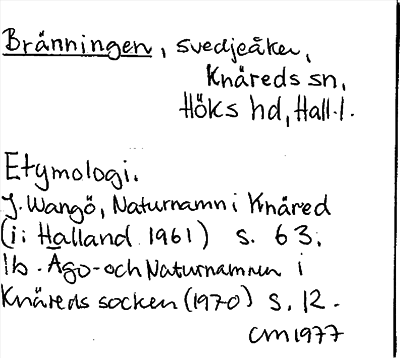 Bränningen, svedjeåker,
Knäreds sn,
Höks hd, Hall.l.
Etymologi.
J. Wangö, Naturnamn i Knäred
(i: Halland 1961) s. 63.
Ib. Ägo- och Naturnamnen i
Knäreds socken (1970) s. 12.
CM 1977